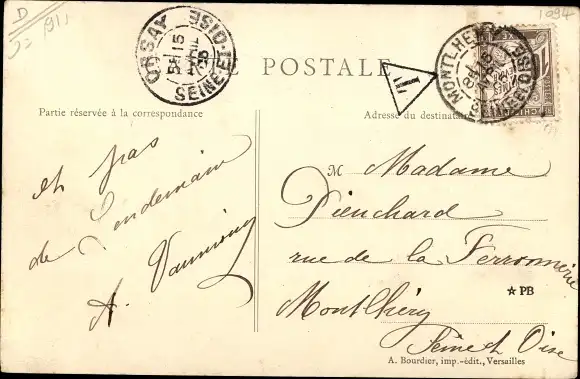 D
1911
1094
ORSAY
15
AVRIL
SEINE-ET-OISE
CARTE POSTALE
T
MONTLHERY
SEINE-ET-OISE
Partie réservée à la correspondance
Adresse du destinataire
et pas
de Lendemain
A.
M Madame
Pienchard
rue de la Ferronnerie
★ PB
Montlhéry
Seine et Oise
A. Bourdier, imp.-édit., Versailles